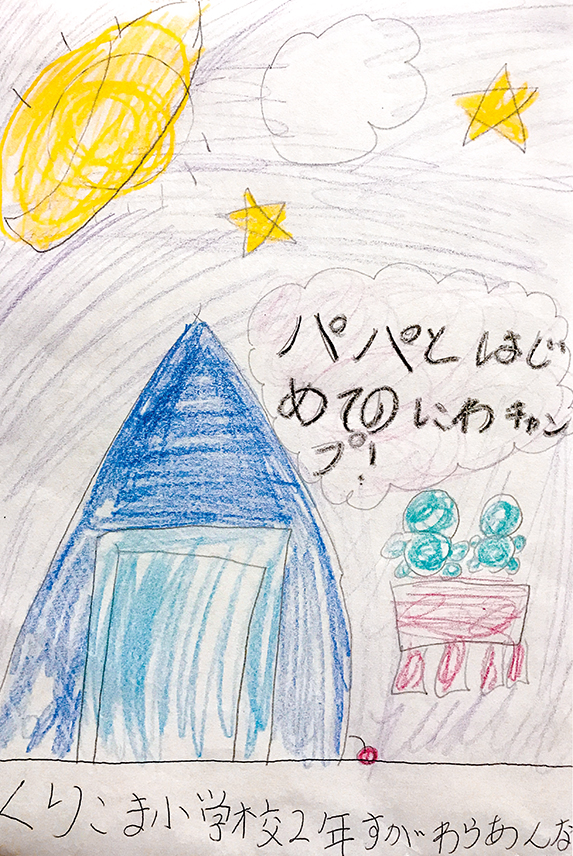 パパとはじ
めてのにわキャン
プ!
くりこま小学校2年すがわらあんな